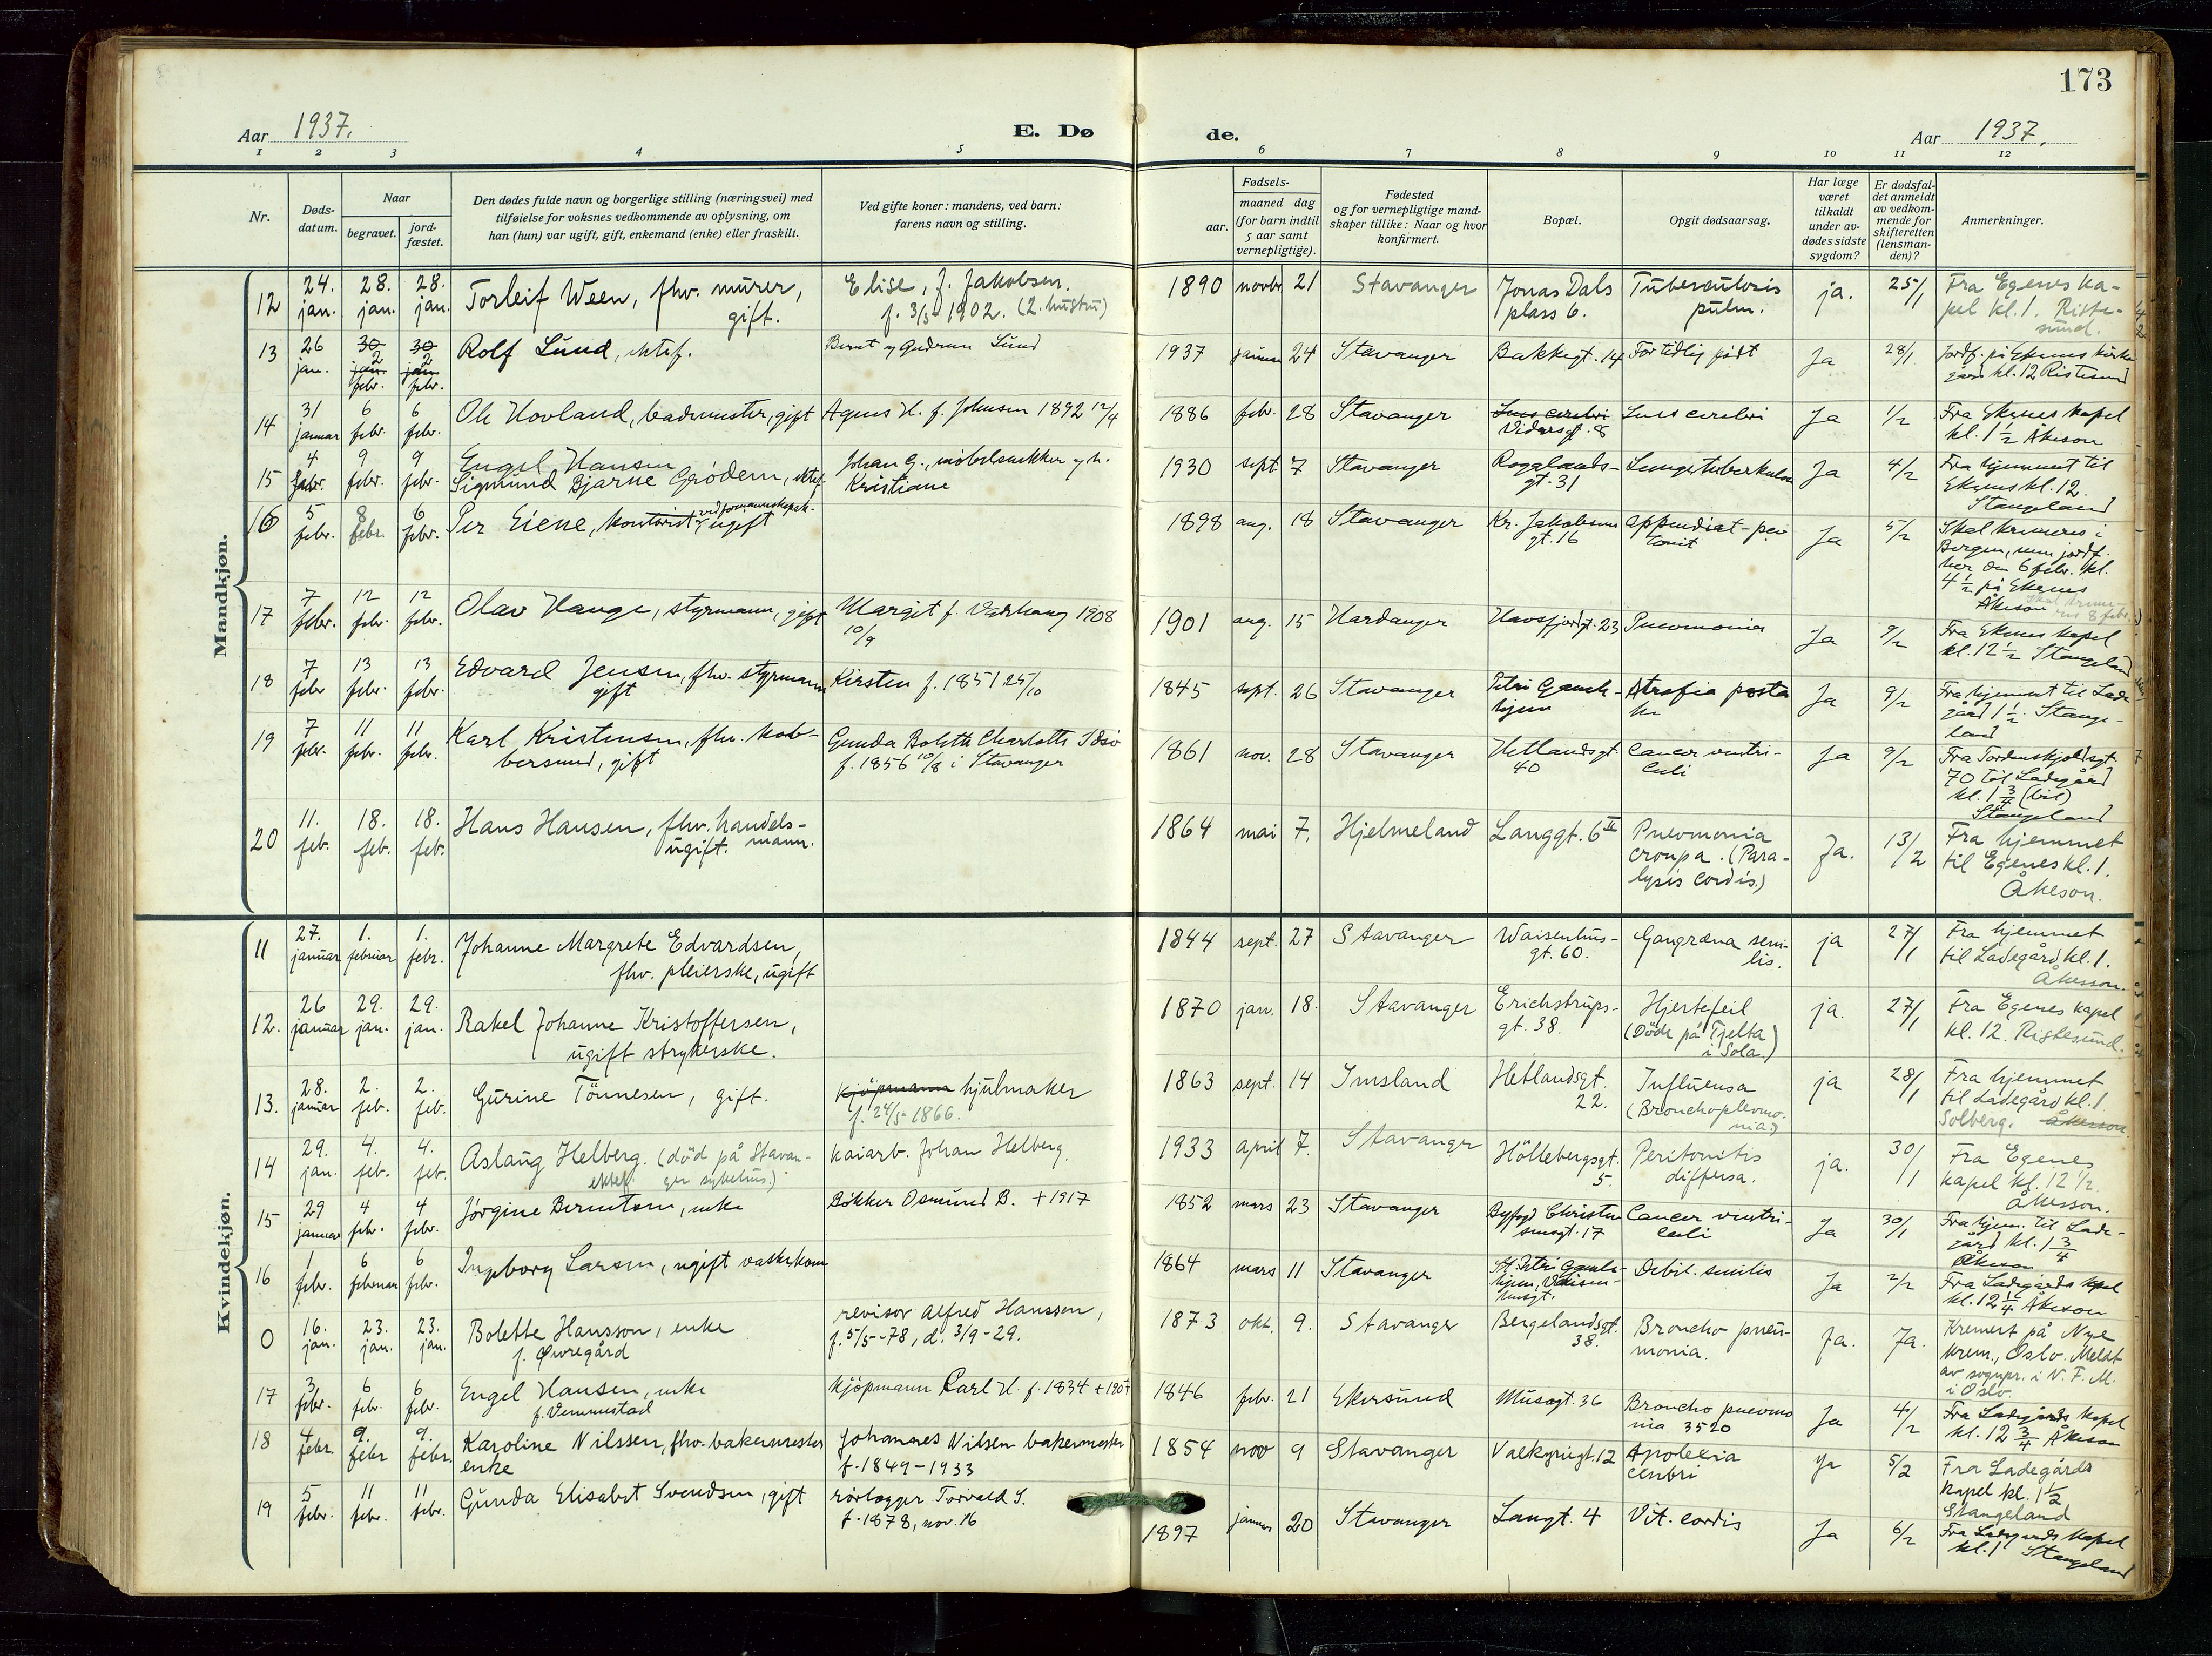 173
Aar 1937.
E. Dø
de.
Aar 1937.
1 2 3 4 5 6 7 8 9 10 11 12
Nr.
Døds-
datum.
Naar
begravet.
jord-
fæstet.
Den dødes fulde navn og borgerlige stilling (næringsvei) med
tilføielse for voksnes vedkommende av oplysning, om
han (hun) var ugift, gift, enkemand (enke) eller fraskilt.
Ved gifte koner: mandens, ved barn:
farens navn og stilling.
aar.
Fødsels-
maaned dag
(for barn indtil
5 aar samt
vernepligtige).
Fødested
og for vernepligtige mand-
skaper tillike: Naar og hvor
konfirmert.
Bopæl.
Opgit dødsaarsag.
Har læge
været
tilkaldt
under av-
dødes sidste
sygdom?
Er dødsfal-
det anmeldt
av vedkom-
mende for
skifteretten
(lensman-
den)?
Anmerkninger.
Mandkjøn.
12 24. jan. 28. jan. 28. jan. Torleif Ween, fhv. murer, gift. Elise, f. Jakobsen. f. 3/3 1902. (2. hustru) 1890 novbr 21 Stavanger Jonas Dals plass 6. Tuberculosis pulm. ja. 25/1 Fra Egenes ka-
pel kl. 1. Riste-
sund.
13 26 jan. 30 jan. 2 febr. 30 jan. 2 febr. Rolf Lund, ektef. Bernt og Gudrun Lund 1937 januar 24 Stavanger Bakkegt. 14 For tidlig født Ja 28/1 Jordf. på Ekenes kirke
gård kl. 12 Ristesund
14 31 januar 6 febr. 6 febr. Ole Hovland, bademester, gift Agnes H. f. Johnsen 1892 12/4 1886 febr. 28 Stavanger Lues cerebri Vidarsgt. 8 Lues cerebri Ja 1/2 Fra Ekenes kapel
kl. 1 1/2 Åkeson
15 4 febr. 9 febr. 9 febr. Engel Hansen
Sigmund Bjarne Grødem, ektef. Johan G., møbelsnekker og h.
Kristiane 1930 sept. 7 Stavanger Rogalands-
gt. 31 Lungetuberkulose Ja 4/2 Fra hjemmet til
Ekenes kl. 12.
Stangeland
16 5 febr. 8 febr. 6 febr. Per Eiene, kontorist ved formannskapsk. ugift 1898 aug. 18 Stavanger Kr. Jakobsens
gt. 16 appendicit-peri
tonit Ja 5/2 Skal kremeres i
Bergen, men jordf.
her den 6 febr. kl.
4 1/2 på Ekenes
Åkeson
17 7 febr. 12 febr. 12 febr. Olav Hauge, styrmann, gift Margit f. Varhaug 1908
10/9 1901 aug. 15 Hardanger Havsfjordgt. 23 Pneumonia Ja 9/2 Fra Ekenes kapel
kl. 12 1/2 Stangeland
18 7 febr 13 febr. 13 febr. Edvard Jensen, fhv. styrmann
gift Kirsten f. 1851 25/10 1845 sept. 26 Stavanger Petri Gamle-
hjem Atrofia posta
ta Ja 9/2 Fra hjemmet til Lade
gård 1 1/2. Stange-
land
19 7 febr. 11 febr. 11 febr. Karl Kristensen, fhv. kob-
bersmed, gift Gunda Bolette Charlotte Idsø
f. 1856 10/8 i Stavanger 1861 nov. 28 Stavanger Hetlandsgt
40 Cancer ventri-
culi Ja 9/2 Fra Tordenskjoldsgt
70 til Ladegård
kl. 1 3/4 (bil)
Stangeland
20 11. feb. 18. feb. 18. feb. Hans Hansen, fhv. handels-
mann. ugift. 1864 mai 7. Hjelmeland Langgt. 6 II Pneumonia
croupa. (Para-
lysis cordis.) Ja. 13/2 Fra hjemmet
til Egenes kl. 1.
Åkeson.
Kvindekjøn.
11 27. januar 1. februar 1. febr. Johanne Margrete Edvardsen,
fhv. pleierske, ugift 1844 sept. 27 Stavanger Waisenhus-
gt. 60. Gangræna seni-
lis. ja 27/1 Fra hjemmet
til Ladegård kl. 1.
Åkesson.
12. 26 januar 29. jan. 29. jan. Rakel Johanne Kristoffersen,
ugift strykerske. 1870 jan. 18. Stavanger Erichstrups-
gt. 38. Hjertefeil
(Døde på Tjelta
i Sola.) ja. 27/1 Fra Egenes kapel
kl. 12. Ristesund.
13. 28. januar 2. feb. 2. feb. Gurine Tönnesen, gift. kjøpmann hjulmaker
f. 24/5 1866. 1863 sept. 14 Imsland Hetlandsgt.
22. Influensa
(Bronchopleumo-
nia) ja 28/1 Fra hjemmet
til Ladegård kl. 1.
Solberg. Åkerson
14 29. jan. 4. feb. 4. feb. Aslaug Helberg. (död på Stavan-
ektef. ger sykehus.) kaiarb. Johan Helberg. 1933 april 7. Stavanger Höllebergsgt.
5. Peritonitis
diffusa. ja. 30/1 Fra Egenes
kapel kl. 12 1/2.
Åkesson.
15 29 januar 4 febr. 4 febr. Jørgine Berntsen, enke Bøkker Osmund B. +1917 1852 mars 23 Stavanger Byfogd Christen
sensgt. 17 Cancer ventri-
culi Ja 30/1 Fra hjem. til Lade-
gård kl. 1 3/4
Åkeson
16 1 febr. 6 februar 6 febr. Ingborg Larsen, ugift vaskekone 1864 mars 11 Stavanger St. Petri Gamle-
hjem, Vaisen-
husgt. Debil. senilis Ja 2/2 Fra Ladegårds kapel
kl. 12 1/4 Åkeson
0 16. jan. 23. jan. 23. jan. Bolette Hansson, enke
f. Øvregård revisor Alfred Hanssen,
f. 5/5-78, d. 3/9-29. 1873 okt. 9. Stavanger Bergelandsgt.
38. Broncho pneu-
monia. Ja. Ja. Kremert på Nye
krem., Oslo. Meldt
av sogpr. i V. F. M.
i Oslo.
17 3 febr. 6 feb. 6 febr. Engel Hansen, enke
f. Vemmestad kjøpmann Carl H. f. 1834 + 1907 1846 febr. 21 Ekersund Musegt. 36 Broncho pneumo
nia 3520 Ja 4/2 Fra Ladegårds kapel
kl. 12 3/4 Åkeson
18 4 febr. 9. febr 9. febr. Karoline Nilssen, fhv. bakermester
enke Johannes Nilsen bakermester
f. 1849-1933 1854 nov 9 Stavanger Valkyriegt. 12 Apoplexia
cerebri Ja 5/2 Fra Ladegårds
kapel kl. 1 1/2
Stangeland
19 5 febr. 11 febr. 11 febr. Gunda Elisabet Svendsen, gift rørlegger Torvald S.
f. 1878, nov. 16 1897 januar 20 Stavanger Langt. 4 Vit. cordis Ja 6/2 Fra Ladegårds kapel
kl. 1 Stangeland